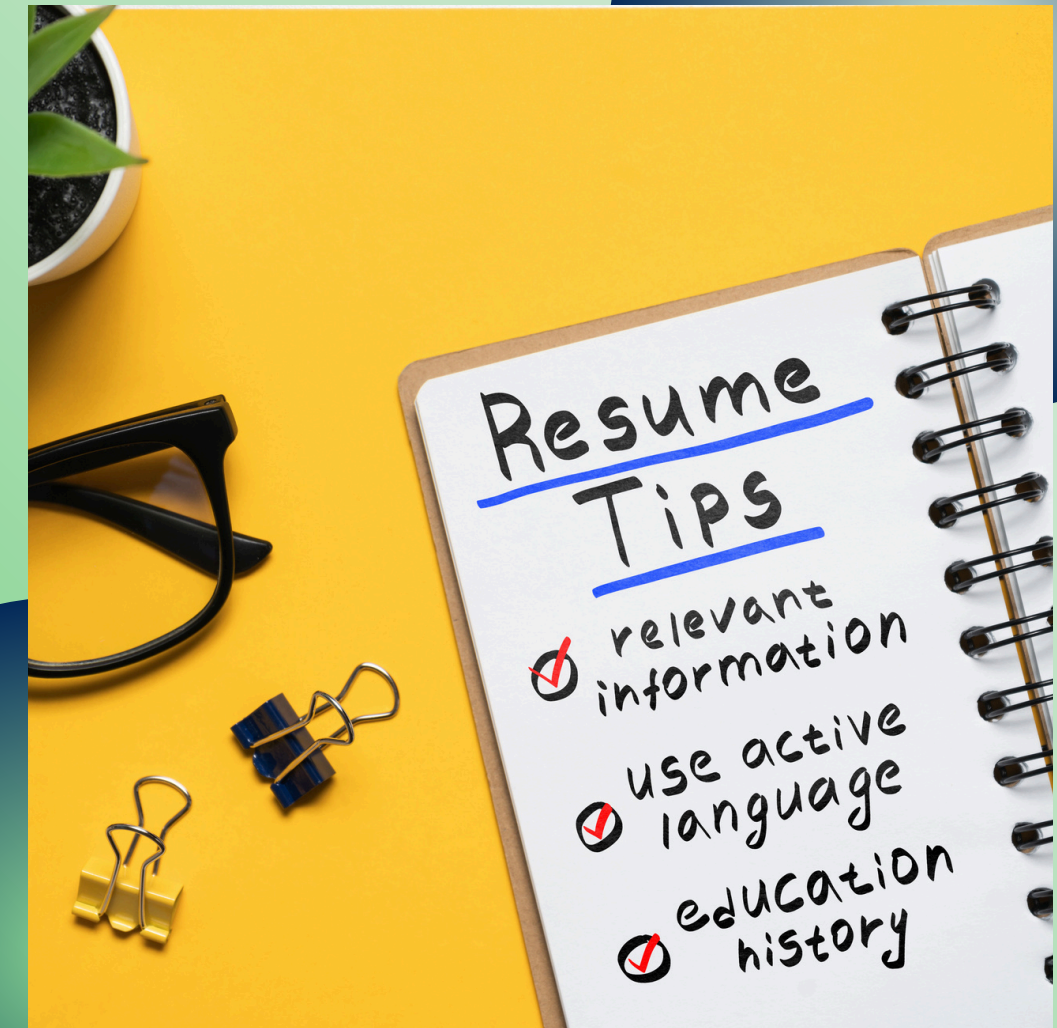 Resume
Tips
relevant
information
use active
language
education
history